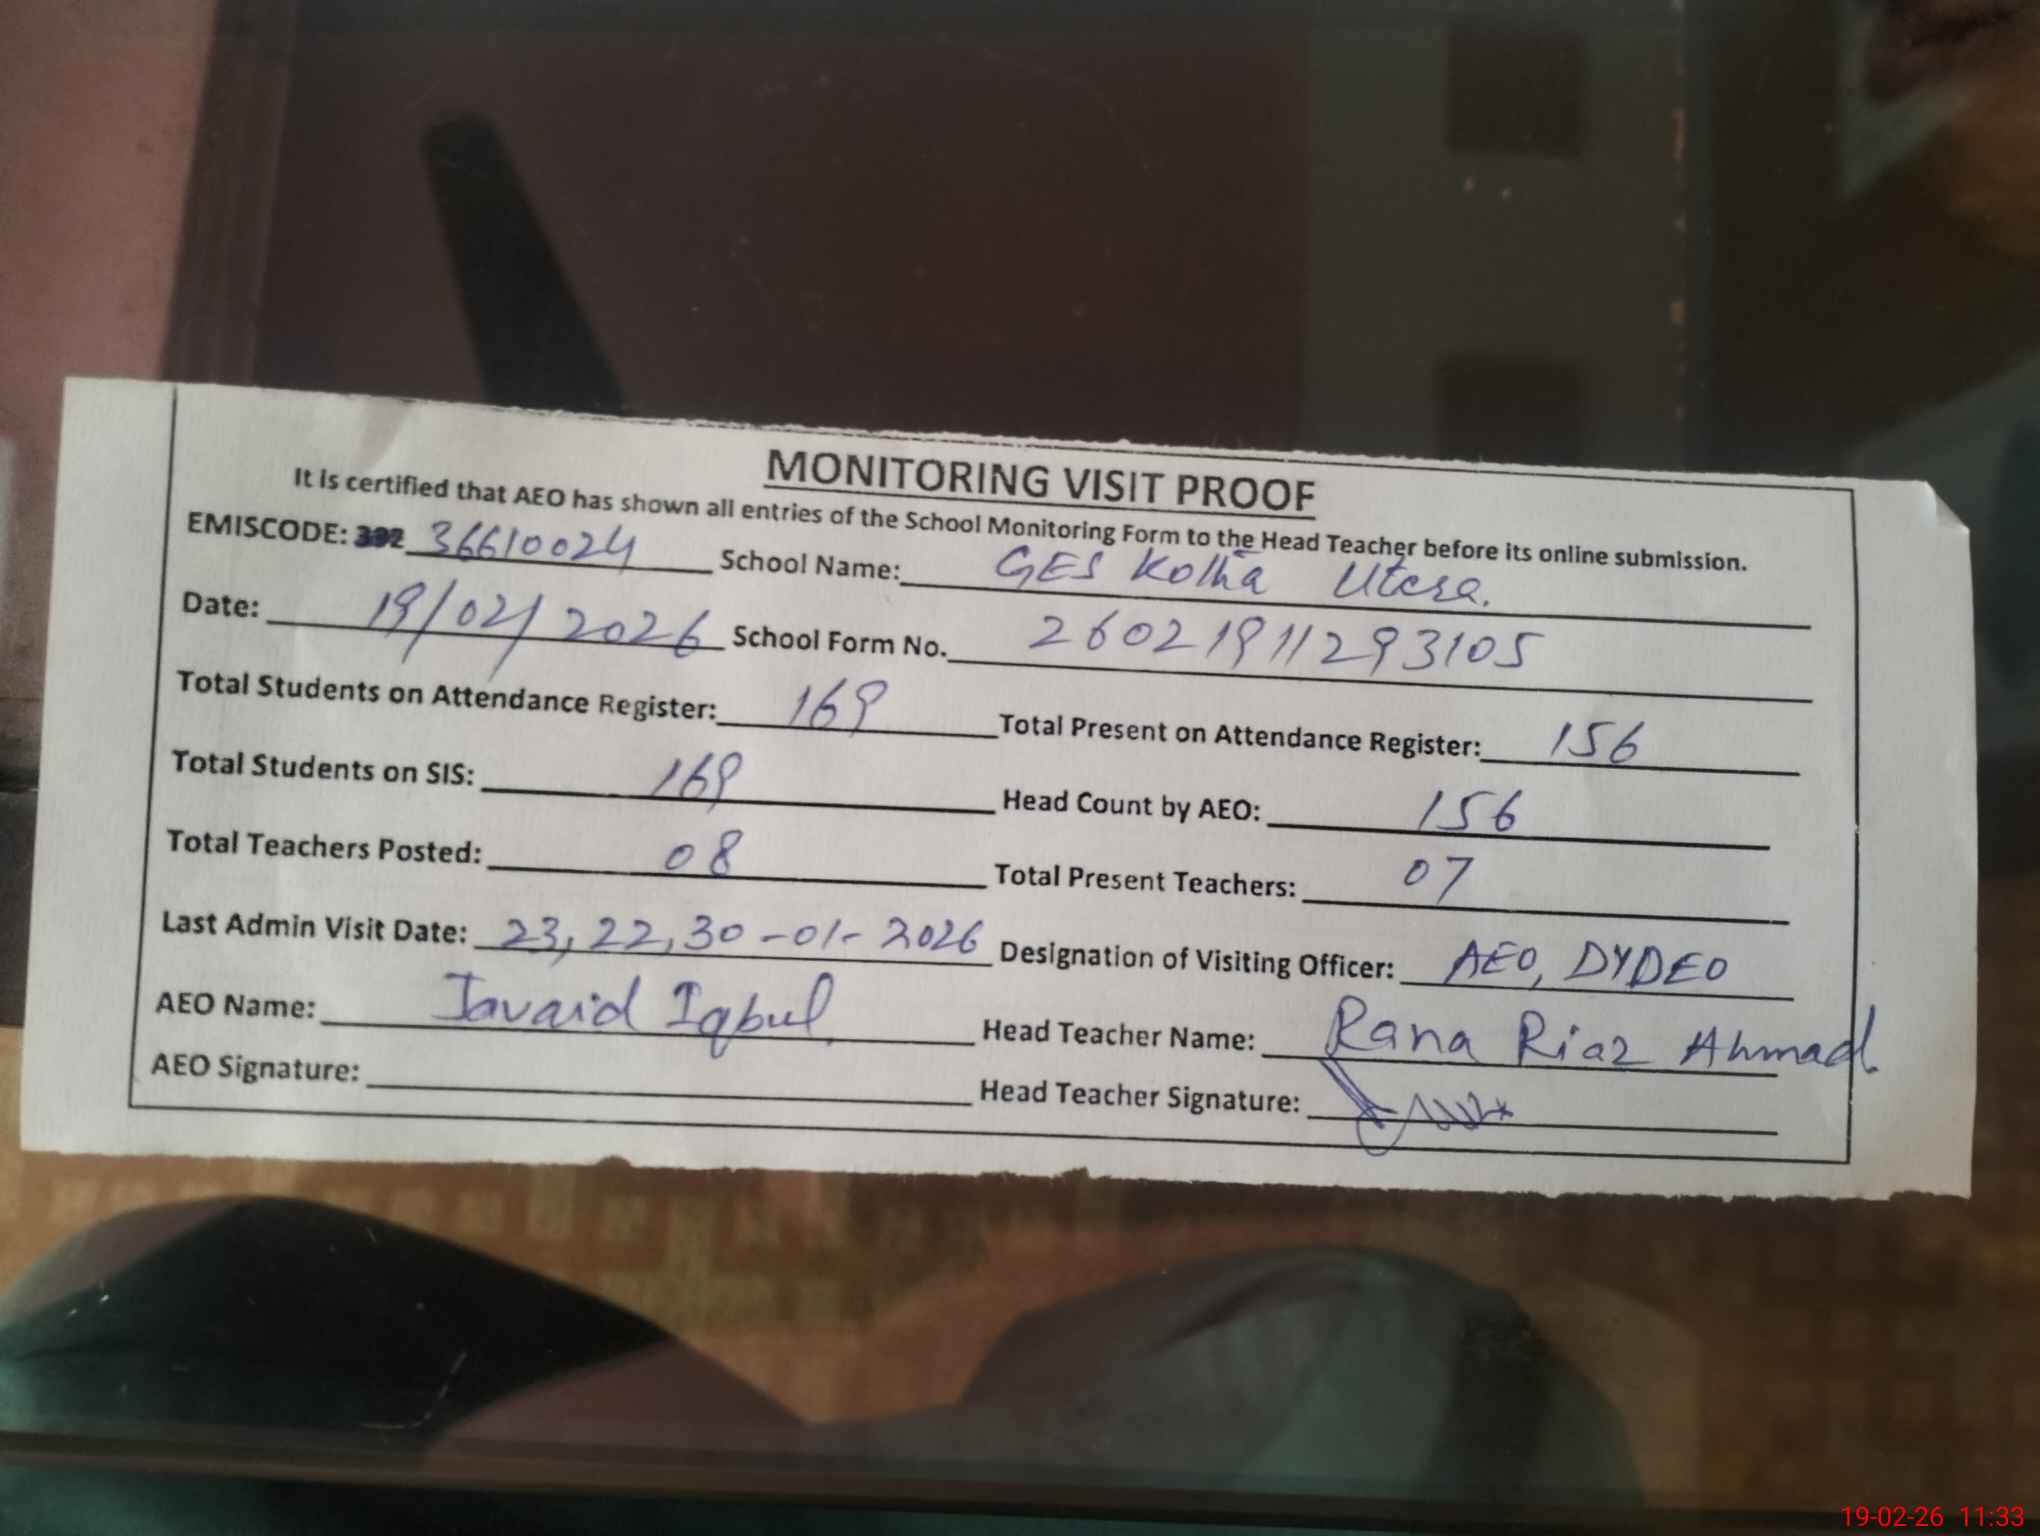 MONITORING VISIT PROOF
It is certified that AEO has shown all entries of the School Monitoring Form to the Head Teacher before its online submission.
EMISCODE: 36610024 School Name: GES Kotha Utera.
Date: 19/02/2026 School Form No. 26021911293105
Total Students on Attendance Register: 169 Total Present on Attendance Register: 156
Total Students on SIS: 169 Head Count by AEO: 156
Total Teachers Posted: 08 Total Present Teachers: 07
Last Admin Visit Date: 23, 22, 30-01-2026 Designation of Visiting Officer: AEO, DYDEO
AEO Name: Javaid Iqbul Head Teacher Name: Rana Riaz Ahmad.
AEO Signature: Head Teacher Signature:
19-02-26 11:33